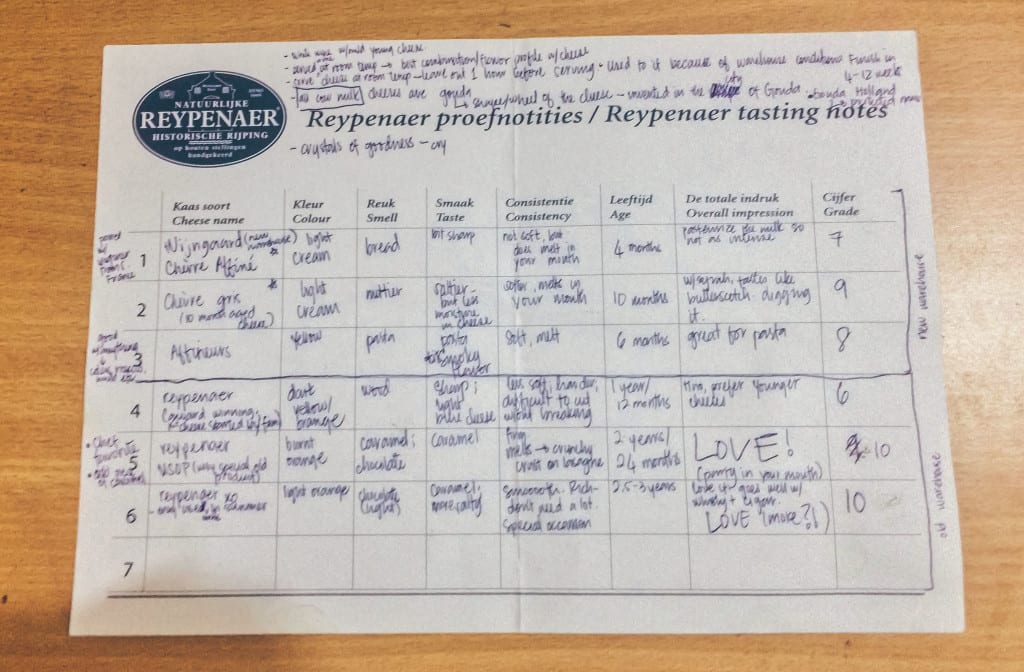 - white wine w/mild young cheese
- served at room temp → best combination/flavor profile w/cheese
- serve cheese at room temp - leave out 1 hour before serving · used to it because of warehouse conditions
Finish in 4-12 weeks
- raw cow milk cheeses are gouda
↳ shape/wheel of the cheese - invented in the city of Gouda · Gouda Holland
↳ protected name
NATUURLIJKE
REYPENAER®
HISTORISCHE RIJPING
op houten stellingen
handgekeerd
Reypenaer proefnotities / Reypenaer tasting notes
- crystals of goodness - cry
Kaas soort Kleur Reuk Smaak Consistentie Leeftijd De totale indruk Cijfer
Cheese name Colour Smell Taste Consistency Age Overall impression Grade
1
Wijngaard (new warehouse)
Chèvre Affiné
light
cream
bread
bit sharp
not soft, but
does melt in
your mouth
4 months
pasteurize the milk so
not as intense
7
France
2
Chèvre gris
(10 month aged
cheese)
light
cream
nuttier
saltier-
but less
moisture
in cheese
softer, melts in
your mouth
10 months
w/syrah, tastes like
butterscotch. digging
it.
9
good
w/everything
3
Affineurs
yellow
pasta
pasta
smoky
flavor
soft, melt
6 months
great for pasta
8
new warehouse
4
reypenaer
(award winning;
cheese started w/ fam)
dark
yellow/
orange
wood
sharp;
light
blue cheese
less soft, harder;
difficult to cut
without breaking
1 year/
12 months
prefer younger
cheeses
6
5
reypenaer
VSOP (very special old
product)
burnt
orange
caramel;
chocolate
caramel
firm,
melts → crunchy
crust on lasagne
2 years/
24 months
LOVE!
(party in your mouth)
10
6
reypenaer XO
light orange
chocolate
(light)
caramel;
more salty
smoooth. Rich-
don't need a lot.
special occasion
2.5-3 years
love it - goes well w/
whisky + cigar.
LOVE (more?!)
10
old warehouse
7